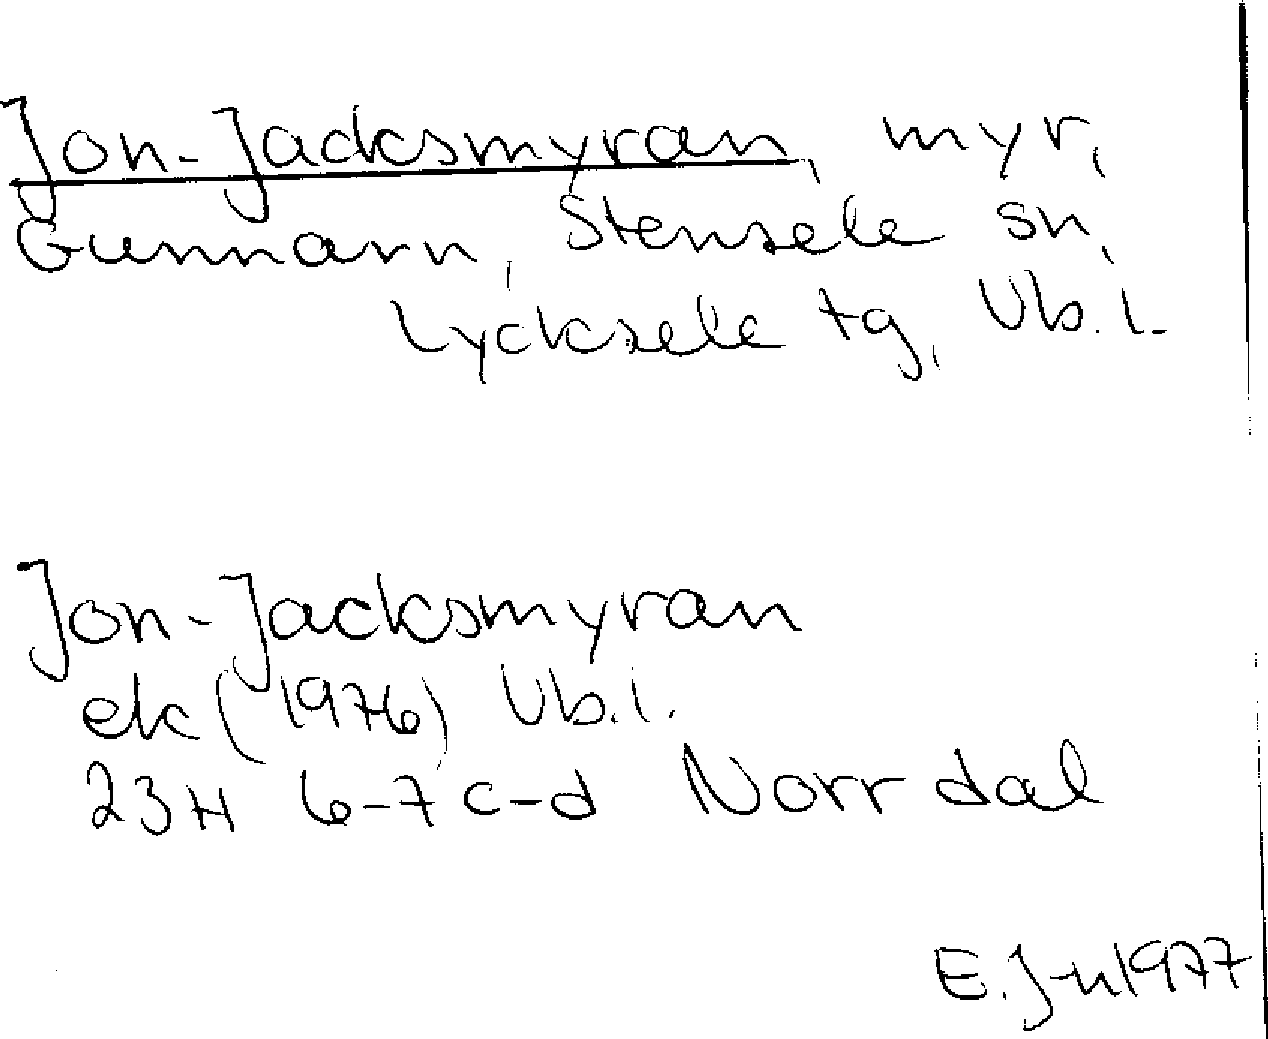 Jon-Jacksmyran, myr,
Gunnarn, Stensele sn,
Lycksele tg, Vb. l.
Jon-Jacksmyran
ek (1976) Vb. l.
23H 6-7 c-d Norrdal
E. J-n 1977